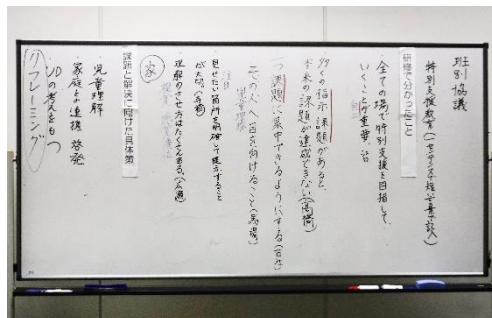 班別協議
特別支援教育
研修で分かったこと
全ての場で特別支援を目指して、
いくことが重要。
多くの指示、課題があると、
本来の課題が達成できない(高橋)
一つ課題に集中できるようにする
その人へ目を向けること(馬場)
児童理解
見せたい箇所を明確にして提示すること
が大切。
理解のさせ方はたくさんある。
家
課題と解決に向けた具体策
児童理解
家庭との連携 啓発
UDの考えをもつ
リフレーミング